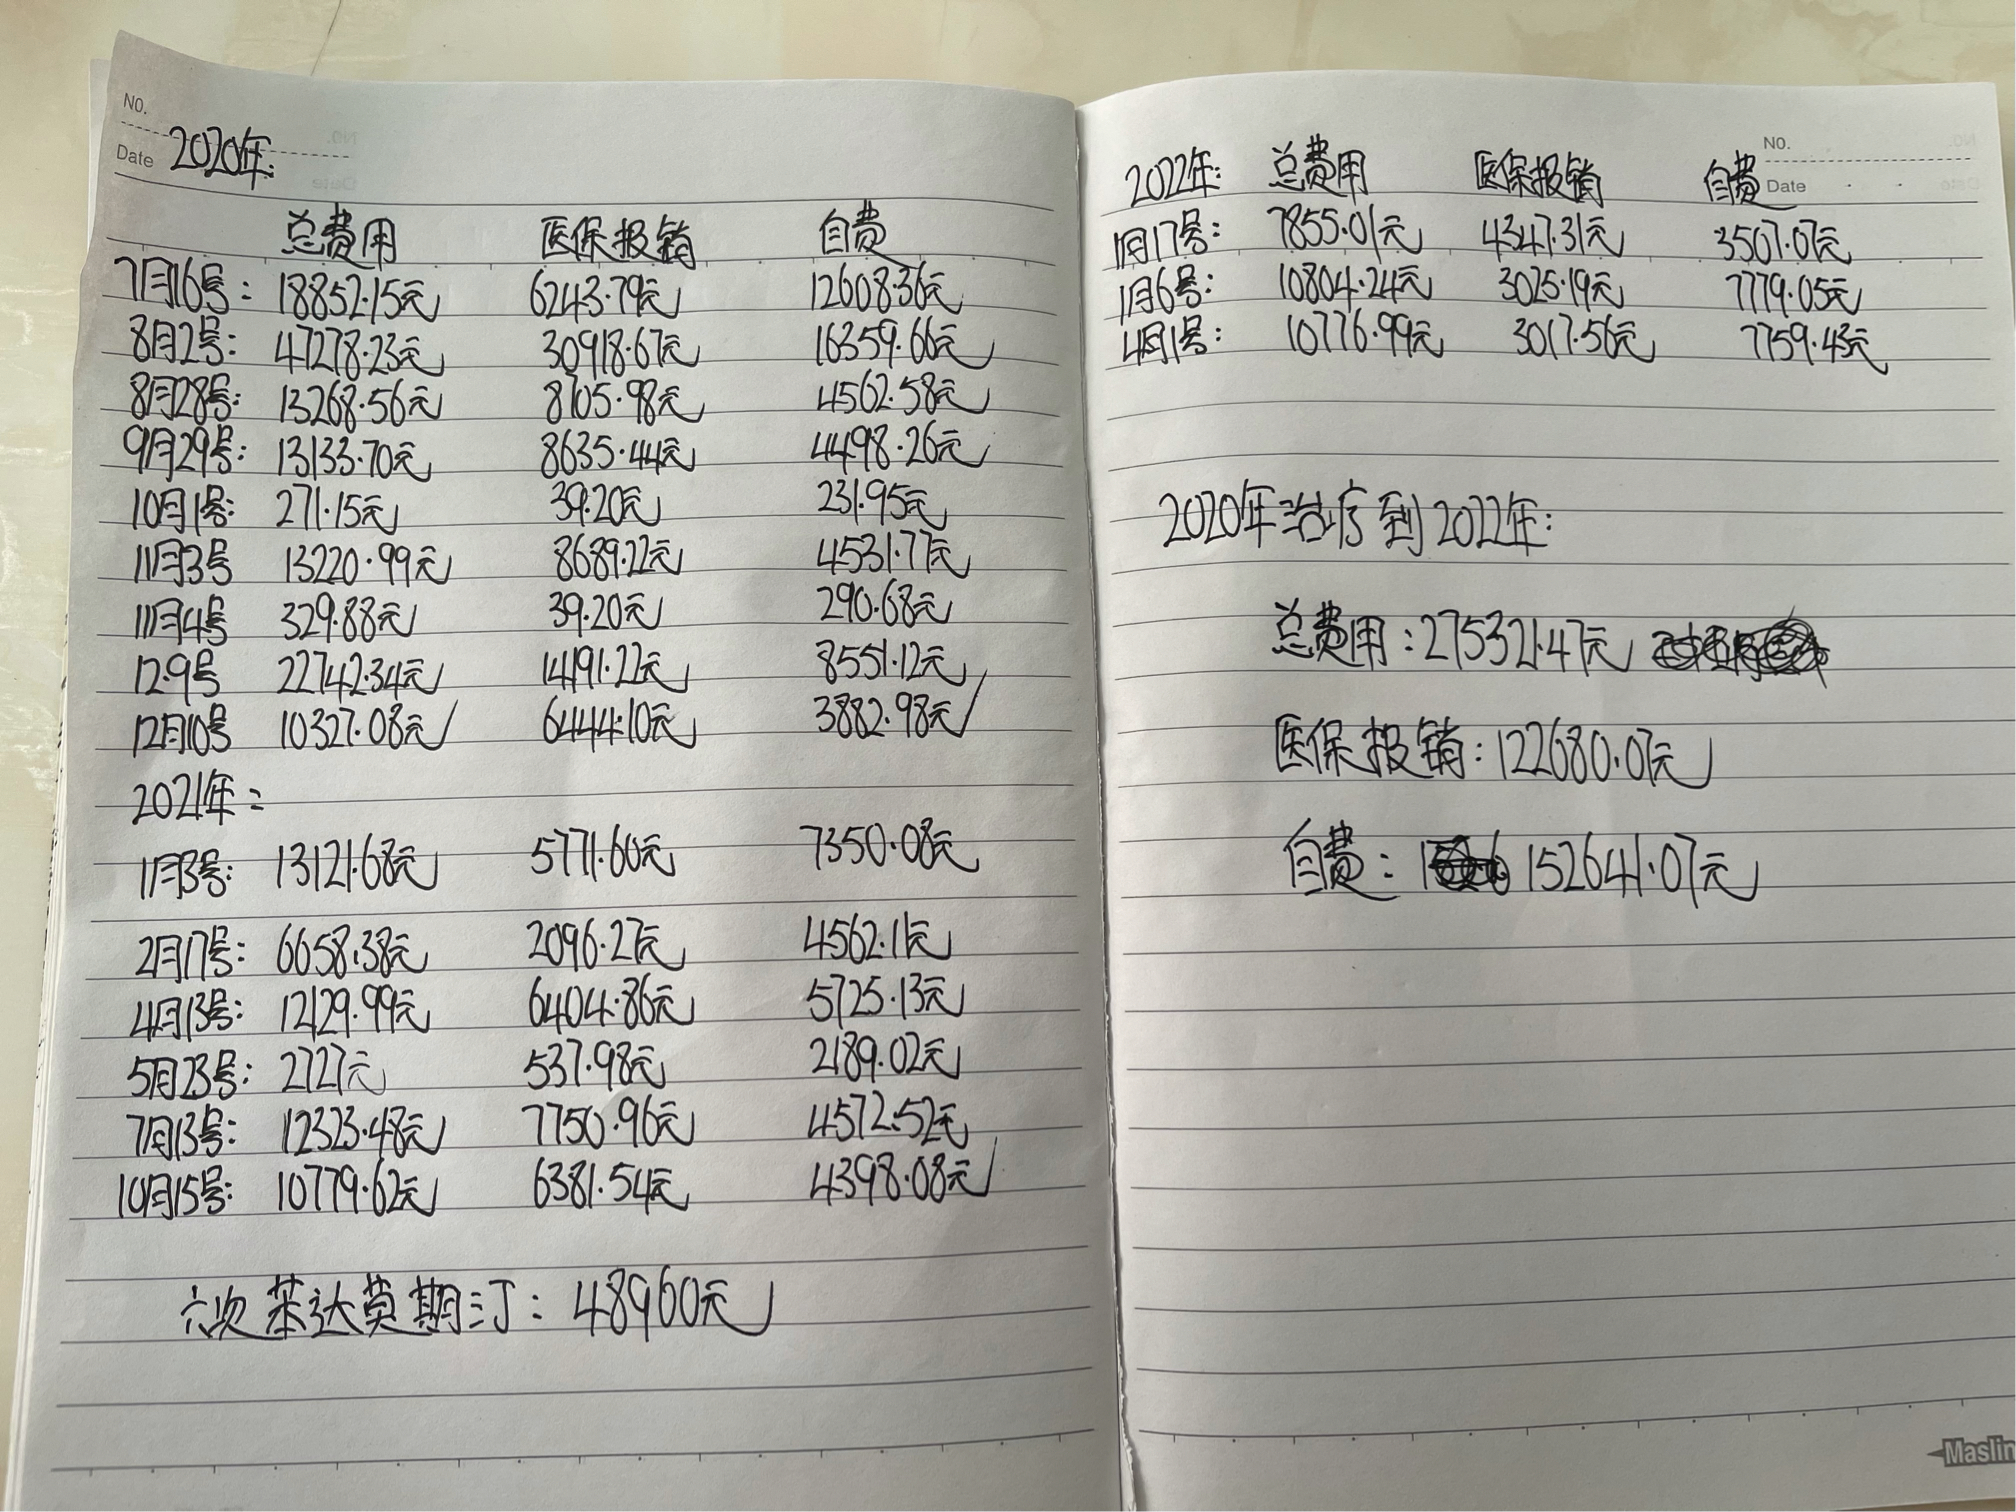 NO.
Date 2020年:
总费用 医保报销 自费
7月16号: 18852.15元 6243.79元 12608.36元
8月2号: 47278.23元 30918.67元 16359.66元
8月28号: 13268.56元 8705.98元 4562.58元
9月29号: 13133.70元 8635.44元 4498.26元
10月1号: 271.15元 39.20元 231.95元
11月3号 13220.99元 8689.22元 4531.77元
11月4号 329.88元 39.20元 290.68元
12.9号 22742.34元 14191.22元 8551.12元
12月10号 10327.08元 6444.10元 3882.98元
2021年:
1月3号: 13121.68元 5771.60元 7350.08元
2月17号: 6658.38元 2096.27元 4562.11元
4月13号: 12129.99元 6404.86元 5725.13元
5月23号: 2727元 537.98元 2189.02元
7月13号: 12323.48元 7750.96元 4572.52元
10月15号: 10779.62元 6381.54元 4398.08元
六次苯达莫期汀: 48960元
NO.
Date
2022年: 总费用 医保报销 自费
1月17号: 7855.01元 4347.31元 3507.07元
1月6号: 10804.24元 3025.19元 7779.05元
4月1号: 10776.99元 3017.56元 7759.43元
2020年治疗到2022年:
总费用: 275321.47元
医保报销: 122680.07元
自费: 152641.07元
Maslin